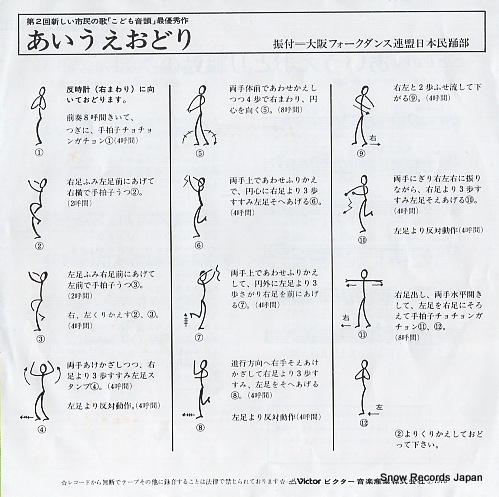 第2回新しい市民の歌「こども音頭」最優秀作
あいうえおどり
振付━大阪フォークダンス連盟日本民踊部
反時計（右まわり）に向
いておどります。
前奏8呼間きいて、
つぎに、手拍子チョチョ
ンガチョン①(4呼間)
①
右足ふみ左足前にあげて
右横で手拍子うつ②。
(2呼間)
②
左足ふみ右足前にあげて
左前で手拍子うつ③。
(2呼間)
右、左くりかえす②、③。
(4呼間)
③
両手あけかざしつつ、右
足より3歩すすみ左足ス
タンプ④。(4呼間)
左足より反対動作。(4呼間)
④
両手体前であわせかえし
つつ4歩で右まわり、円
心を向く⑤。(8呼間)
⑤
両手上であわせふりかえ
で、円心に右足より3歩
すすみ左足そへあげる⑥。
(4呼間)
⑥
両手上であわせふりかえ
して、円外に左足より3
歩さがり右足を前にあげ
る⑦。(4呼間)
⑦
進行方向へ右手そえあけ
かざして右足より3歩す
すみ、左足をそへあげる
⑧。(4呼間)
左足より反対動作(4呼間)
⑧
右左と2歩ふせ流して下
がる⑨。(4呼間)
右
⑨
両手にぎり右左右に振り
ながら、右足より3歩す
すみ左足そえあげる⑩。
(4呼間)
左足より反対動作(4呼間)
⑩
右足出し、両手水平開き
して、左足を右足にそろ
えて手拍子チョチョンガ
チョン⑪、⑫。
(8呼間)
右
⑪
左
⑫
②よりくりかえしておど
って下さい。
☆レコードから無断でテープその他に録音することは法律で禁じられております☆
Victor ビクター音楽産業株式会社
Snow Records Japan
www.snowrecords.jp